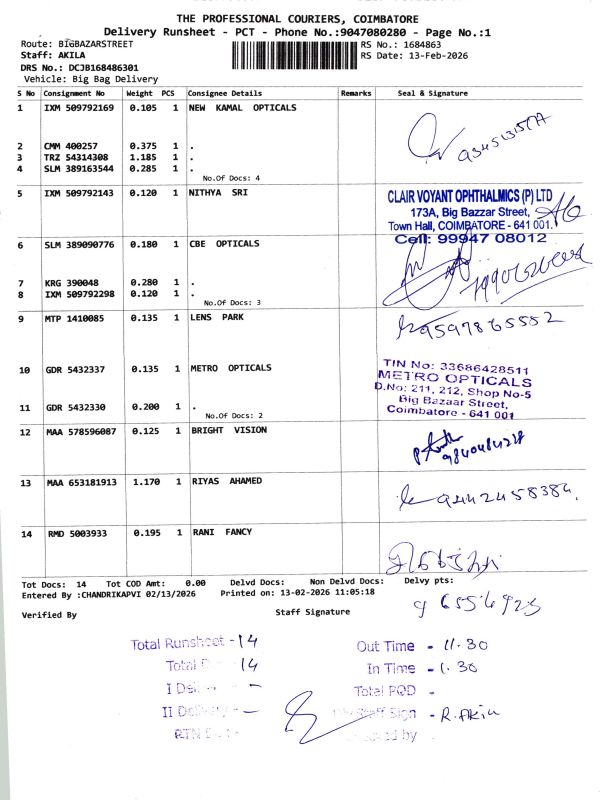 THE PROFESSIONAL COURIERS, COIMBATORE
Delivery Runsheet - PCT - Phone No.:9047080280 - Page No.:1
Route: BIGBAZARSTREET
RS No.: 1684863
Staff: AKILA
RS Date: 13-Feb-2026
DRS No.: DCJB168486301
Vehicle: Big Bag Delivery
S No Consignment No Weight PCS Consignee Details Remarks Seal & Signature
1 IXM 509792169 0.105 1 NEW KAMAL OPTICALS
2 CMM 400257 0.375 1 .
3 TRZ 54314308 1.185 1 .
4 SLM 389163544 0.285 1 .
No.Of Docs: 4
5 IXM 509792143 0.120 1 NITHYA SRI
CLAIR VOYANT OPHTHALMICS (P) LTD
173A, Big Bazzar Street,
Town Hall, COIMBATORE - 641 001.
Cell: 99947 08012
6 SLM 389090776 0.180 1 CBE OPTICALS
7 KRG 390048 0.280 1 .
8 IXM 509792298 0.120 1 .
No.Of Docs: 3
9 MTP 1410085 0.135 1 LENS PARK
9597865552
10 GDR 5432337 0.135 1 METRO OPTICALS
TIN No: 33686428511
METRO OPTICALS
D.No: 211, 212, Shop No-5
Big Bazaar Street,
Coimbatore - 641 001
11 GDR 5432330 0.200 1 .
No.Of Docs: 2
12 MAA 578596087 0.125 1 BRIGHT VISION
13 MAA 653181913 1.170 1 RIYAS AHAMED
9442458384
14 RMD 5003933 0.195 1 RANI FANCY
Tot Docs: 14 Tot COD Amt: 0.00 Delvd Docs: Non Delvd Docs: Delvy pts:
Entered By :CHANDRIKAPVI 02/13/2026 Printed on: 13-02-2026 11:05:18
Verified By Staff Signature
Total Runsheet - 14
Out Time - 11.30
Total - 14
In Time - 1.30
I Del -
Total POD -
II Delivery -
Staff Sign - R.Akila
by